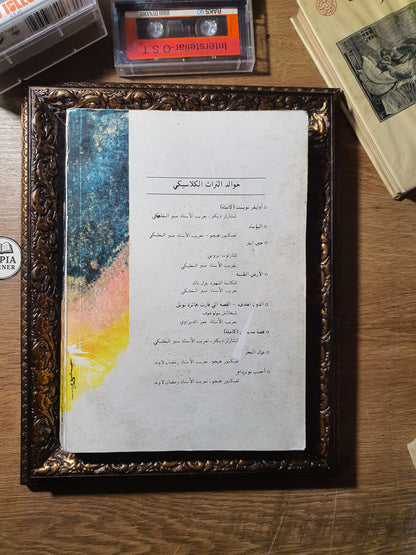 BAKS 90
HIGH DYNAMIC
Interstellar-O.S.T
PIA
ORNER
خوالد التراث الكلاسيكي
¤ أوليفر تويست (كاملة)
تشارلز ديكنز، تعريب الأستاذ منير البعلبكي
¤ البؤساء
لفيكتور هيجو - تعريب الأستاذ منير البعلبكي
¤ جين إير
لشارلوت برونتي
تعريب الأستاذ منير البعلبكي
¤ الأرض الطيبة
للكاتبة الشهيرة بيرل باك
تعريب الأستاذ منير البعلبكي
¤ الدون الهادىء - القصة التي فازت بجائزة نوبل
لميخائيل شولوخوف
تعريب الأستاذ عمر الديراوي
¤ قصة مدينتين (كاملة)
لتشارلز ديكنز، تعريب الأستاذ منير البعلبكي
¤ عمال البحر
لفيكتور هيجو، تعريب الأستاذ رمضان لاوند
¤ أحدب نوتردام
لفيكتور هيجو، تعريب الأستاذ رمضان لاوند